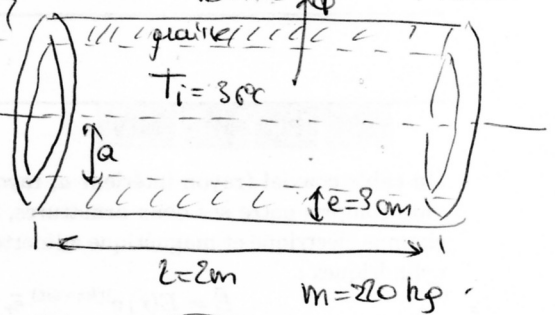 φ
graisse
Ti = 36°C
a
e=30m
l=2m
m=220 kg.